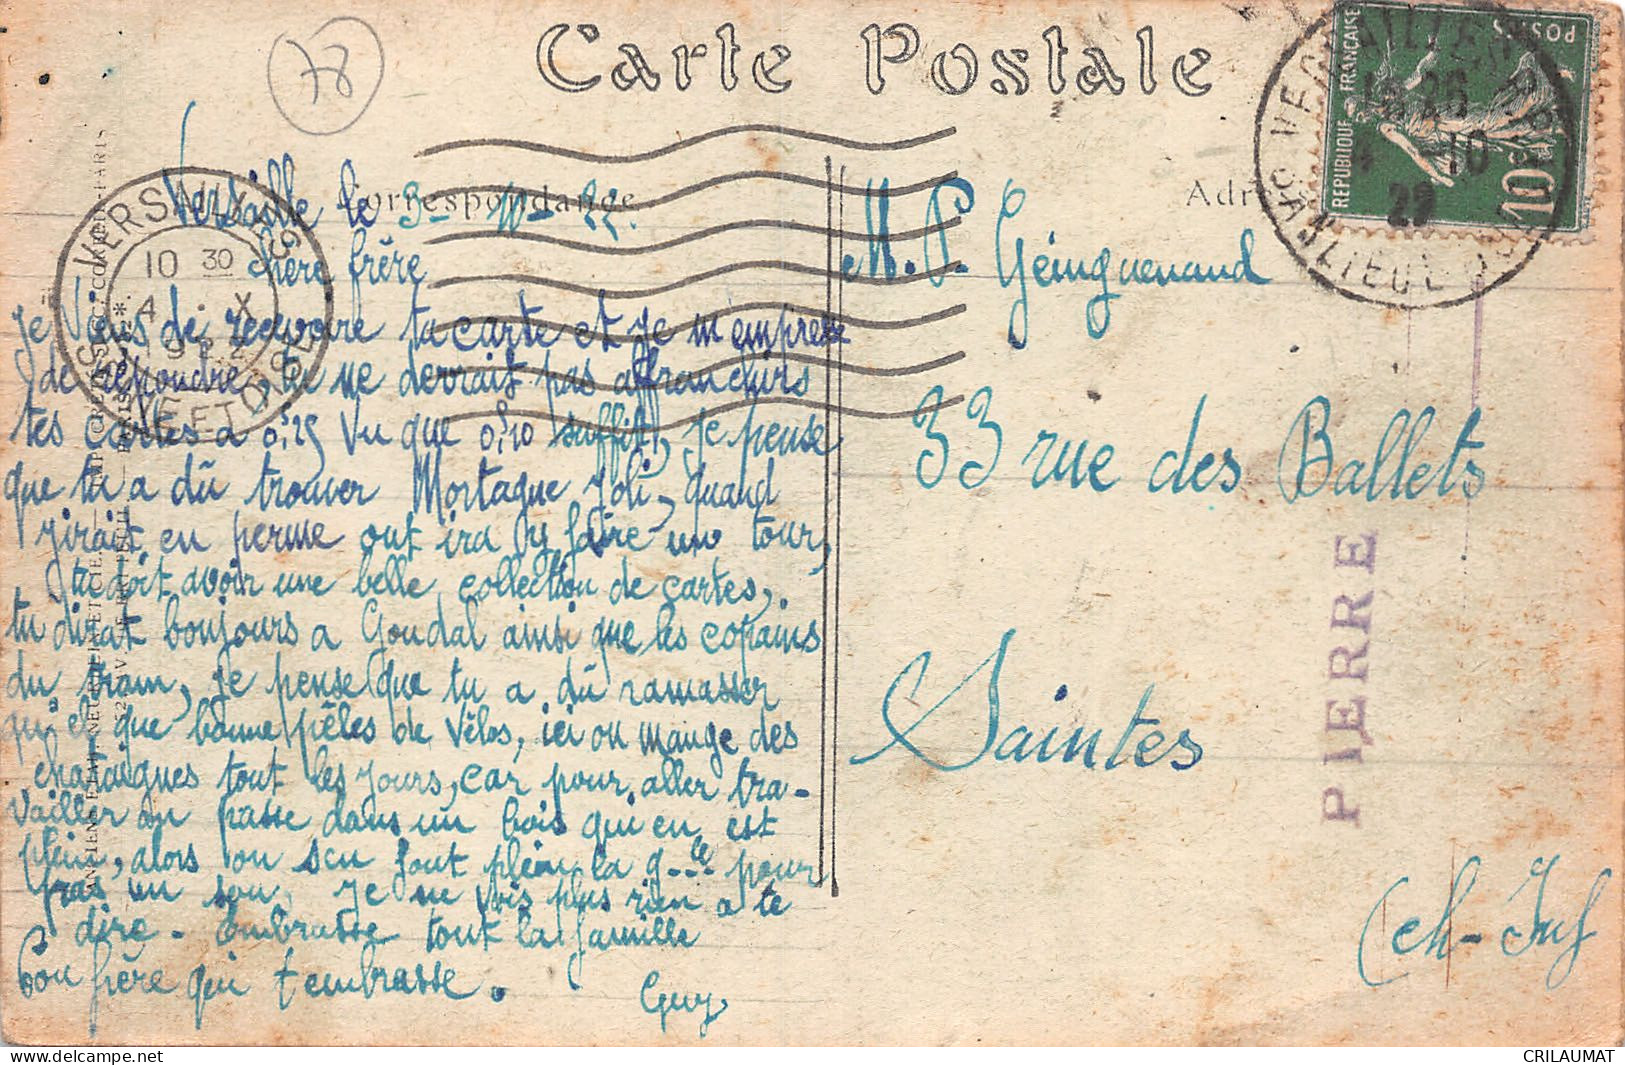 78
Carte Postale
Correspondance
Adr
Versaille le 3 - 10 - 22.
chère frère
Je Viens de recevoire ta carte et je m'empresse
de répondre, tu ne derrait pas affranchirs
tes cartes a 0,25 Vu que 0,10 suffit, je pense
que tu a dû trouver Mortaque Joli, quand
Jirait en perme ont ira faire un tour,
tu doit avoir une belle collection de cartes,
tu dirat boujours a Goudal ainsi que les copains
du train, Je pense que tu a dû ramasser
que bonne pêles de Vélos, ici on mange des
chataignes tout les jours, car pour aller tra-
vailler on passe dans un bois qui en est
plein, alors on sen fout plein la g---le pour
pas un sou, Je ne Vois plus rien a te
dire - Embrasse tout la famille
Ton frère qui t'embrasse.
Guy
M. P. Geinguenaud
33 rue des Ballets
Saintes
(Ch-Inf
PIERRE
VERSAILLES
10 30
4 X
1922
REPUBLIQUE FRANCAISE
POSTES
10c
15 25
4 -10
22
ANCIENS ETAB. NEURDEIN ET CIE
PARIS
CRILAUMAT